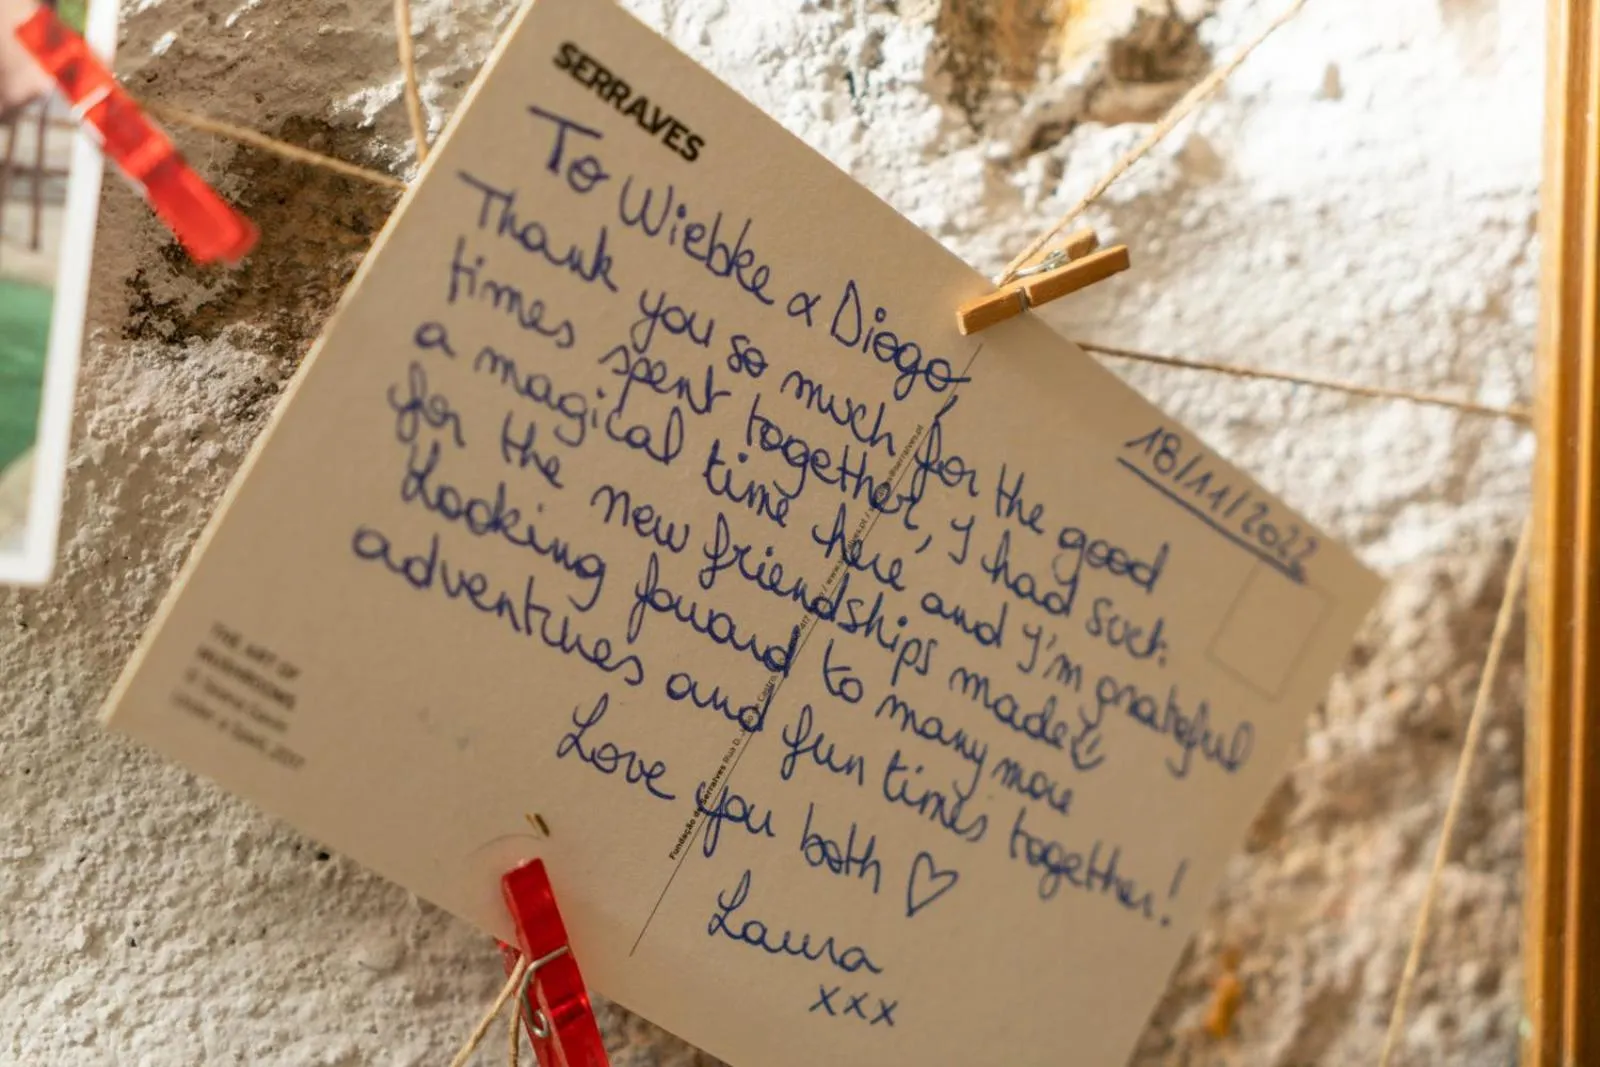 SERRALVES
To Wiebke & Diogo,
18/11/2022
Thank you so much for the good
times spent together, I had such
a magical time here and I'm grateful
for the new friendships made
Looking foward to many more
adventures and fun times together!
Love you both ♡
Laura
xxx
Fundação de Serralves Rua D.
THE ART OF
MUSHROOMS